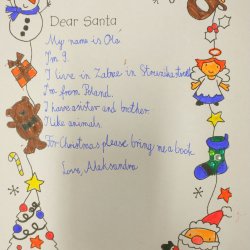 Dear Santa
My name is Ola
I'm 9.
I live in Zabrze in street.
I'm from Poland.
I have a sister and brother.
I like animals.
For Christmas please bring me a book
Love, Aleksandra